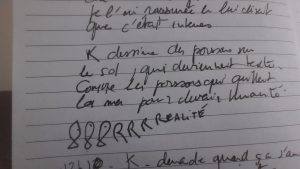 je l'ai rassurée en lui disant
que c'était intense
K dessine des poissons sur
le sol, qui deviennent texte.
Comme les poissons qui quittent
la mer pour devenir humanité.
888RRRREALITÉ
K. demande quand ça s'am